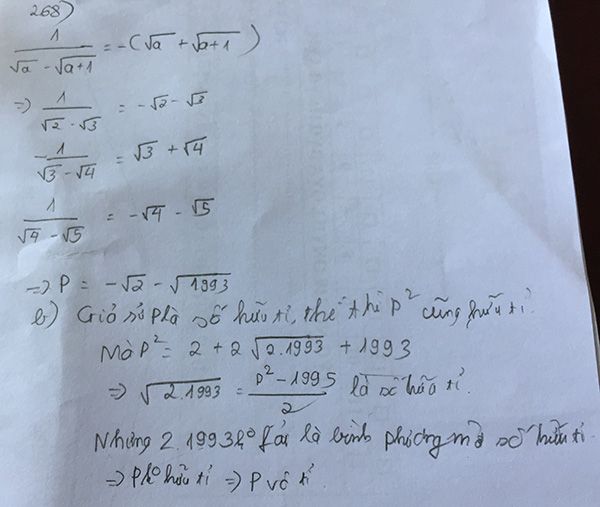 268)
1/(√a - √a+1) = -(√a + √a+1)
=> 1/(√2 - √3) = -√2 - √3
-1/(√3 - √4) = √3 + √4
1/(√4 - √5) = -√4 - √5
=> P = -√2 - √1993
b) Giả sử P là số hữu tỉ, thế thì P² cũng hữu tỉ.
Mà P² = 2 + 2√2.1993 + 1993
=> √2.1993 = (P² - 1995)/2 là số hữu tỉ.
Nhưng 2.1993 k° fải là bình phương một số hữu tỉ.
=> P k° hữu tỉ => P vô tỉ